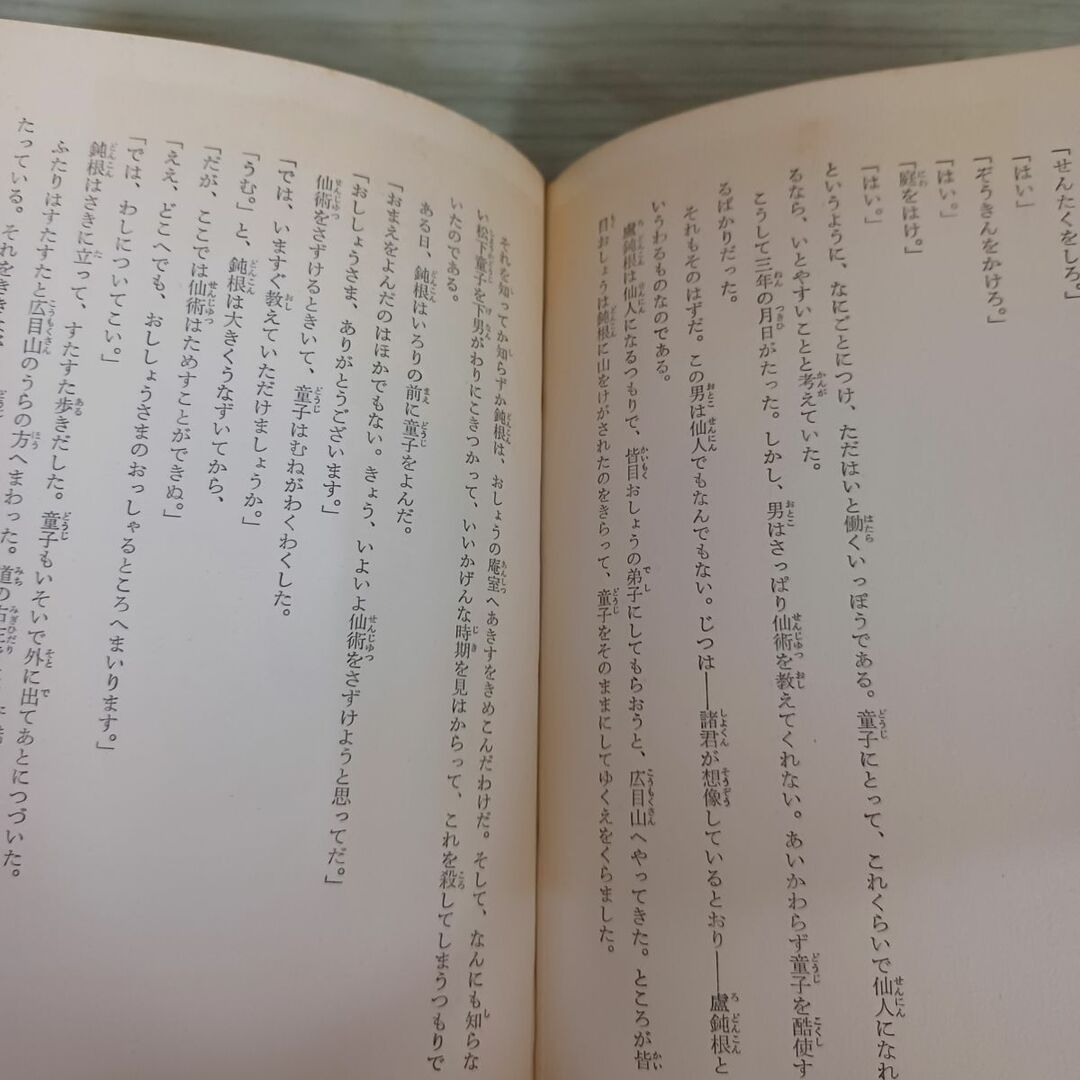 「せんたくをしろ。」
「はい」
「ぞうきんをかけろ。」
「はい。」
「庭をはけ。」
「はい。」
というように、なにごとにつけ、ただはいと働くいっぽうである。童子にとって、これくらいで仙人になれ
るなら、いとやすいことと考えていた。
こうして三年の月日がたった。しかし、男はさっぱり仙術を教えてくれない。あいかわらず童子を酷使す
るばかりだった。
それもそのはずだ。この男は仙人でもなんでもない。じつは――諸君が想像しているとおり――盧鈍根と
いうわるものなのである。
盧鈍根は仙人になるつもりで、皆目おしょうの弟子にしてもらおうと、広目山へやってきた。ところが皆
目おしょうは鈍根に山をけがされたのをきらって、童子をそのままにしてゆくえをくらました。
それを知ってか知らずか鈍根は、おしょうの庵室へあきすをきめこんだわけだ。そして、なんにも知らな
い松下童子を下男がわりにこきつかって、いいかげんな時期を見はからって、これを殺してしまうつもりで
いたのである。
ある日、鈍根はいろりの前に童子をよんだ。
「おまえをよんだのはほかでもない。きょう、いよいよ仙術をさずけようと思ってだ。」
「おししょうさま、ありがとうございます。」
仙術をさずけるときいて、童子はむねがわくわくした。
「では、いますぐ教えていただけましょうか。」
「うむ。」と、鈍根は大きくうなずいてから、
「だが、ここでは仙術はためすことができぬ。」
「ええ、どこへでも、おししょうさまのおっしゃるところへまいります。」
「では、わしについてこい。」
鈍根はさきに立って、すたすた歩きだした。童子もいそいで外に出てあとにつづいた。
ふたりはすたすたと広目山のうらの方へまわった。道の
たっている。それをきき